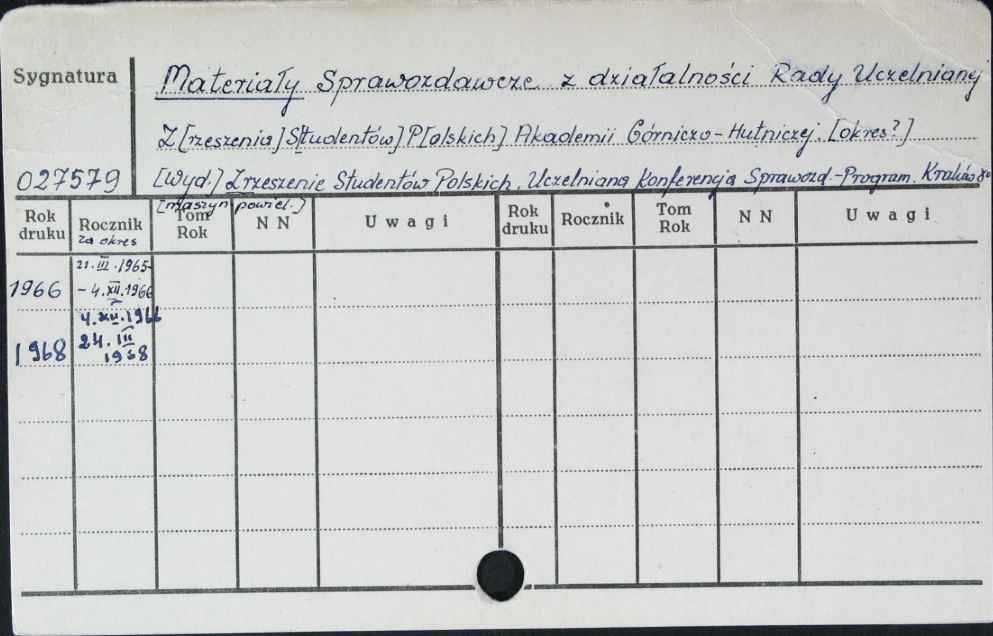 Sygnatura
Materiały Sprawozdawcze z działalności Rady Uczelnianej
Z[rzeszenia] Studentów] P[olskich] Akademii Górniczo-Hutniczej. [okres?]
027579
[Wyd.] Zrzeszenie Studentów Polskich, Uczelniana Konferencja Sprawozd.-Program. Kraków
[maszyn powiel.]
Rok druku Rocznik Tom Rok N N Uwagi Rok druku Rocznik Tom Rok N N Uwagi
za okres
21.III.1965-
1966 - 4.XII.1966
4.XII.1966
1968 24.III
1968